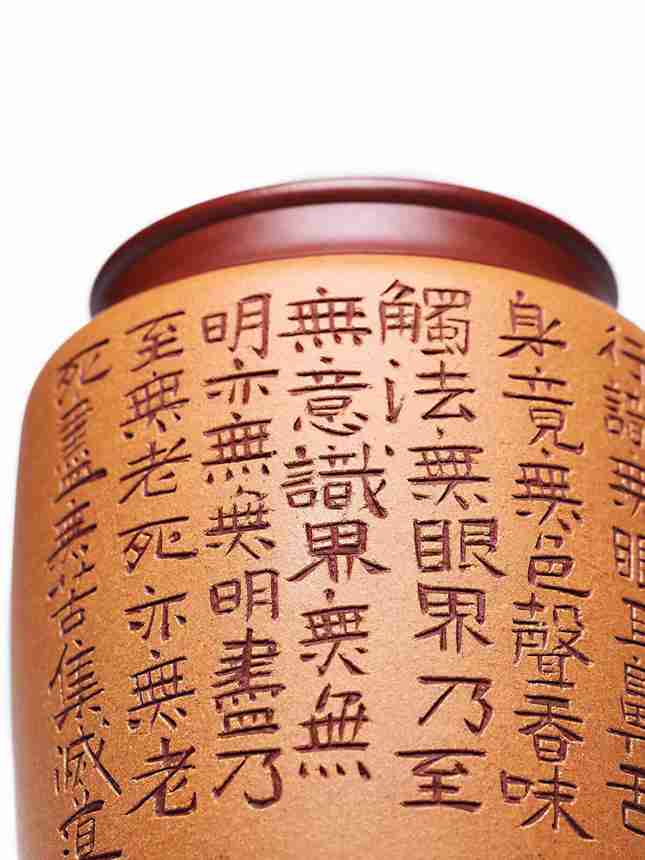 行識無眼耳鼻舌
身竟無色聲香味
觸法無眼界乃至
無意識界無無
明亦無無明盡乃
至無老死亦無老
死盡無苦集滅道